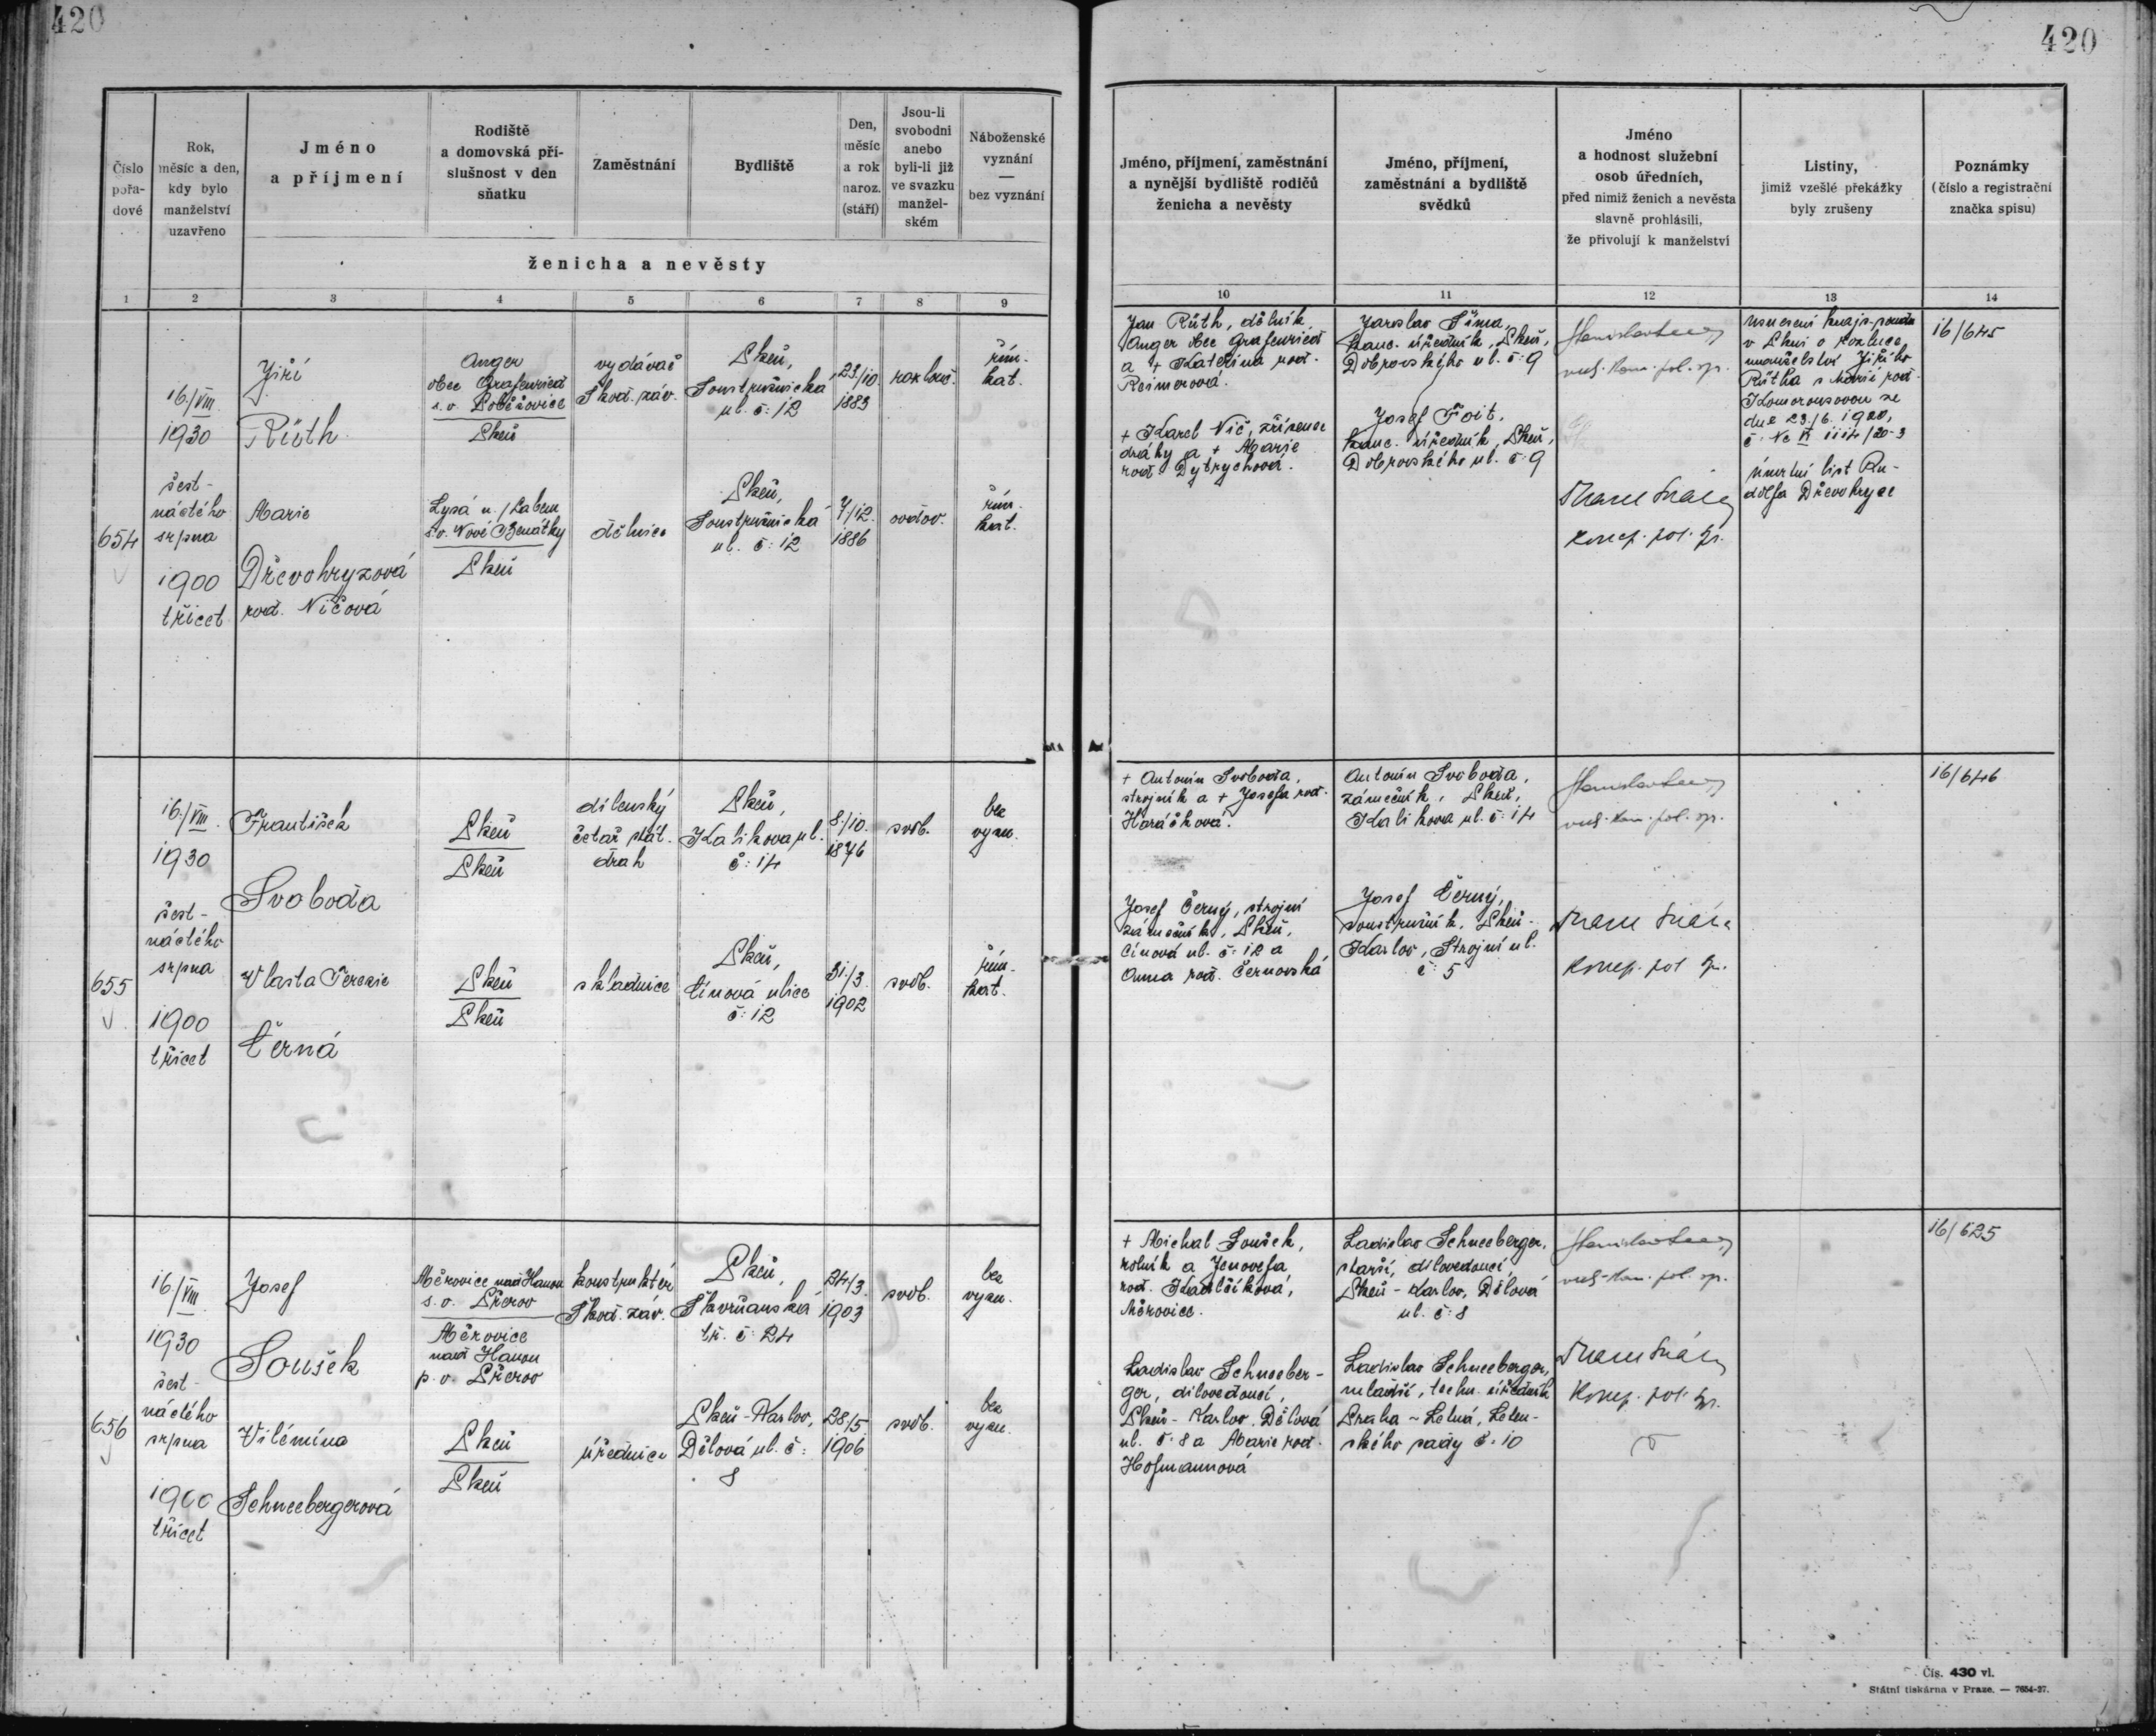 420
420
Číslo
pořa-
dové
Rok,
měsíc a den,
kdy bylo
manželství
uzavřeno
Jméno
a příjmení
Rodiště
a domovská pří-
slušnost v den
sňatku
Zaměstnání
Bydliště
Den,
měsíc
a rok
naroz.
(stáří)
Jsou-li
svobodni
anebo
byli-li již
ve svazku
manžel-
ském
Náboženské
vyznání
—
bez vyznání
ženicha a nevěsty
1 2 3 4 5 6 7 8 9
Jméno, příjmení, zaměstnání
a nynější bydliště rodičů
ženicha a nevěsty
Jméno, příjmení,
zaměstnání a bydliště
svědků
Jméno
a hodnost služební
osob úředních,
před nimiž ženich a nevěsta
slavně prohlásili,
že přivolují k manželství
Listiny,
jimiž vzešlé překážky
byly zrušeny
Poznámky
(číslo a registrační
značka spisu)
10 11 12 13 14
654
16/VIII.
1930
šest-
náctého
srpna
1900
třicet
Jiří
Rüth
Anger
obec Grafenried
s.o.
Plzeň
vydávač
Škod. záv.
Plzeň,
Soustružnická
ul. č: 12
23/10.
1883
rozlouč.
řím.
kat.
Marie
Dřevohryzová
rod. Ničová
Lysá n./Labem
s.o. Nové Benátky
Plzeň
dělnice
Plzeň,
Soustružnická
ul. č: 12
7/12.
1886
ovdov.
řím.
kat.
Jan Rüth, dělník,
Anger obec Grafenried
a + Kateřina rod.
Reimerová.
+ Karel Nič, zřízenec
dráhy a + Marie
rod. Dytrychová.
Jaroslav Šíma,
kanc. úředník, Plzeň,
Dobrovského ul. č: 9
Josef Foit,
kanc. úředník, Plzeň,
Dobrovského ul. č: 9
pol. sp.
pol.
Usnesení krajs. soudu
v Plzni o rozluce
manželství Jiřího
Rütha s Marií rod.
Komorousovou ze
dne 23./6. 1920,
č. Nc VI 1114/20-3
Úmrtní list Ru-
dolfa Dřevohryze
16/645
655
16/VIII.
1930
šest-
náctého
srpna
1900
třicet
František
Svoboda
Plzeň
Plzeň
dílenský
četař stát.
drah
Plzeň,
Kalikova ul.
č: 14
8/10.
1876
svob.
bez
vyzn.
Vlasta Terezie
Černá
Plzeň
Plzeň
skladnice
Plzeň,
Cínová ulice
č: 12
31/3.
1902
svob.
řím.
kat.
+ Antonín Svoboda,
strojník a + Josefa rod.
Haráčková.
Josef Černý, strojní
zámečník, Plzeň,
Cínová ul. č: 12 a
Anna rod. Černovská
Antonín Svoboda,
zámečník, Plzeň,
Kalikova ul. č: 14
Josef Černý,
soustružník, Plzeň-
Karlov, Strojní ul.
č: 5
pol. sp.
pol.
16/646
656
16/VIII.
1930
šest-
náctého
srpna
1900
třicet
Josef
Soušek
Měrovice nad Hanou
s.o. Přerov
Měrovice
nad Hanou
p.o. Přerov
konstruktér
Škod. záv.
Plzeň,
Skvrňanská
tř. č: 24
24/3.
1903
svob.
bez
vyzn.
Vilémína
Schneebergerová
Plzeň
Plzeň
úřednice
Plzeň-Karlov,
Dělová ul. č:
8
28/5.
1906
svob.
bez
vyzn.
+ Michal Soušek,
rolník a Jenovefa
rod.
Měrovice.
Ladislav Schneeber-
ger, dílovedoucí,
Plzeň-Karlov, Dělová
ul. č: 8 a Marie rod.
Hofmannová
Ladislav Schneeberger,
starší, dílovedoucí,
Plzeň-Karlov, Dělová
ul. č: 8
Ladislav Schneeberger,
mladší, techn. úředník
Praha-Letná, Leten-
ského sady č: 10
pol. sp.
pol.
16/625
Čís. 430 vl.
Státní tiskárna v Praze. — 7654-27.